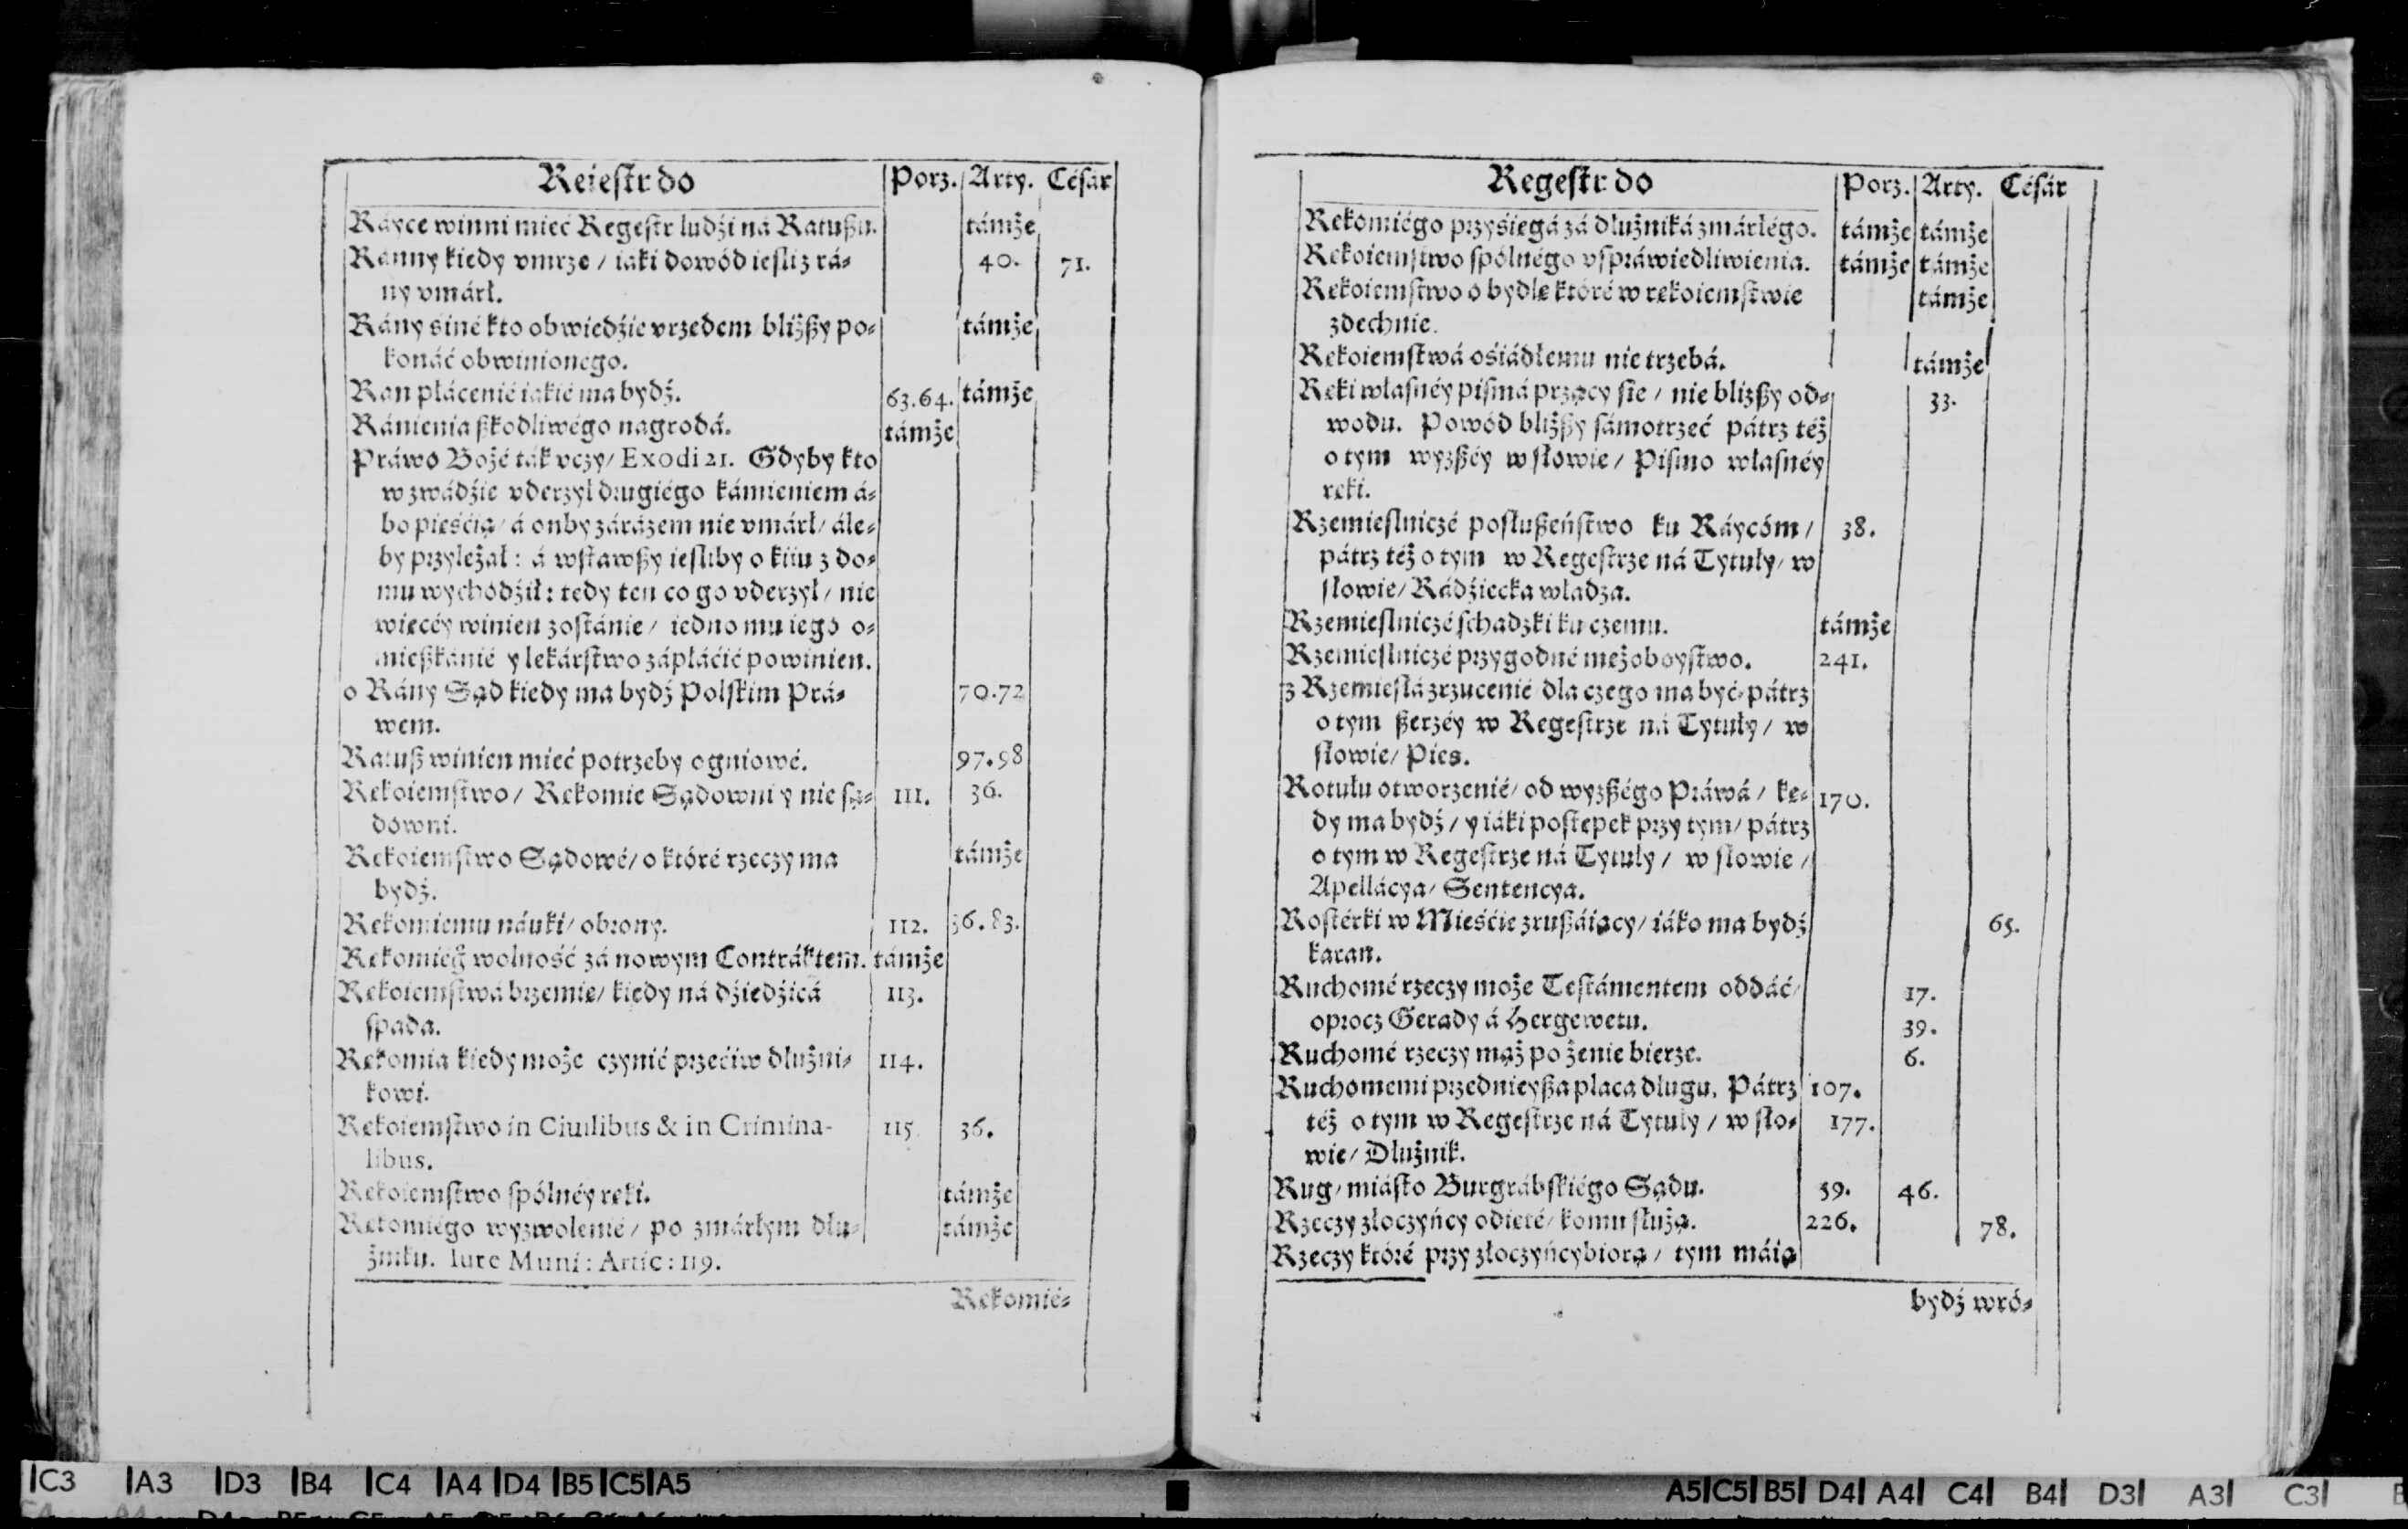 Reiestr do Porz. Arty. Césár
Ráyce winni mieć Regestr ludźi ná Ratuszu. támże
Ranny kiedy vmrze / iaki dowód iesli z rá- 40. 71.
ny vmárł.
Rány sine kto obwiedźie vrzedem bliższy po- támże
konáć obwinionego.
Ran płácenié iakié ma bydź. 63.64. támże
Ránienia szkodliwégo nagrodá. támże
Práwo Bożé ták vczy / Exodi 21. Gdyby kto
w zwádźie vderzył drugiégo kámieniem á-
bo pieśćią / á onby zárázem nie vmárł / ále-
by przyleżał : á wstawszy iesliby o kiiu z do-
mu wychodźił : tedy ten co go vderzył / nie
wiecéy winien zostánie / iedno mu iego o-
mieszkánié y lekárstwo zápłáćić powinien.
o Rány Sąd kiedy ma bydź Polskim Prá- 70.72
wem.
Ratusz winien mieć potrzeby ogniowé. 97.98
Rekoiemstwo / Rekomie Sądowni y nie są- 111. 36.
downi.
Rekoiemstwo Sądowé / o któré rzeczy ma támże
bydź.
Rekomiemu náuki / obrony. 112. 36.83.
Rekomiég̃ wolność zá nowym Contráktem. támże
Rekoiemstwá brzemie / kiedy ná dźiedźicá 113.
spada.
Rekomia kiedy może czynić przećiw dłużni- 114.
kowi.
Rekoiemstwo in Ciuilibus & in Crimina- 115. 36.
libus.
Rekoiemstwo spólnéy reki. támże
Rekomiégo wyzwolenié / po zmárłym dłu- támże
żniku. Iure Muni : Artic : 119.
Rekomié-
Regestr do Porz. Arty. Césár
Rekomiégo przyśiegá zá dłużniká zmárłégo. támże támże
Rekoiemstwo spólnégo vspráwiedliwienia. támże támże
Rekoiemstwo o bydle któré w rekoiemstwie támże
zdechnie.
Rekoiemstwá ośiádłemu nie trzebá. támże
Reki własnéy pismá przący sie / nie bliższy od- 33.
wodu. Powód bliższy sámotrzeć pátrz téż
o tym wyższéy w słowie / Pismo własnéy
reki.
Rzemieslniczé posłuszeństwo ku Ráycóm / 38.
pátrz téż o tym w Regestrze ná Tytuły / w
słowie / Rádźiecka władza.
Rzemieslniczé schadzki ku czemu. támże
Rzemieslniczé przygodné mężoboystwo. 241.
z Rzemiesłá zrzucenié dla czego ma być pátrz
o tym szerzéy w Regestrze ná Tytuły / w
słowie / Pies.
Rotułu otworzenié / od wyższégo Práwá / ke- 170.
dy ma bydź / y iáki postepek przy tym / pátrz
o tym w Regestrze ná Tytuły / w słowie /
Apellácya / Sentencya.
Rostérki w Mieśćie zruszáiący / iáko ma bydź 65.
karan.
Ruchomé rzeczy może Testámentem oddáć / 17.
oprocz Gerady á Hergewetu. 39.
Ruchomé rzeczy mąż po żenie bierze. 6.
Ruchomemi przednieysza płaca dlugu. Pátrz 107.
téż o tym w Regestrze ná Tytuły / w sło- 177.
wie / Dlużnik.
Rug / miásto Burgrábskiégo Sądu. 39. 46.
Rzeczy złoczyńcy odieté / komu służą. 226. 78.
Rzeczy któré przy złoczyńcy biorą / tym máią
bydź wró-
C3 A3 D3 B4 C4 A4 D4 B5 C5 A5
A5 C5 B5 D4 A4 C4 B4 D3 A3 C3